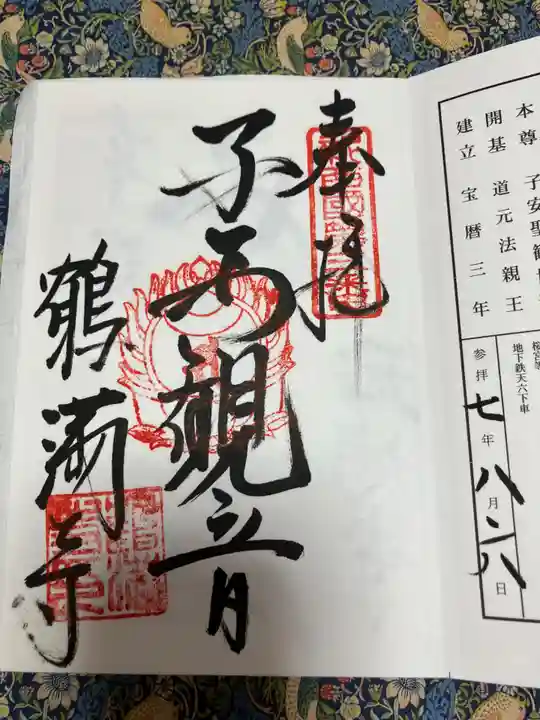 本尊 子安聖観世
開基 道元法親王
建立 宝暦三年
地下鉄天六下車
参拝 七年八月二八日
奉拝
子安觀音
鶴満寺